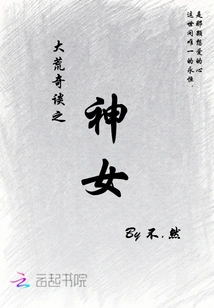 是那颗想爱的心
这世间唯一的永恒.
大荒奇谈之
神女
By 不.然
云起书院